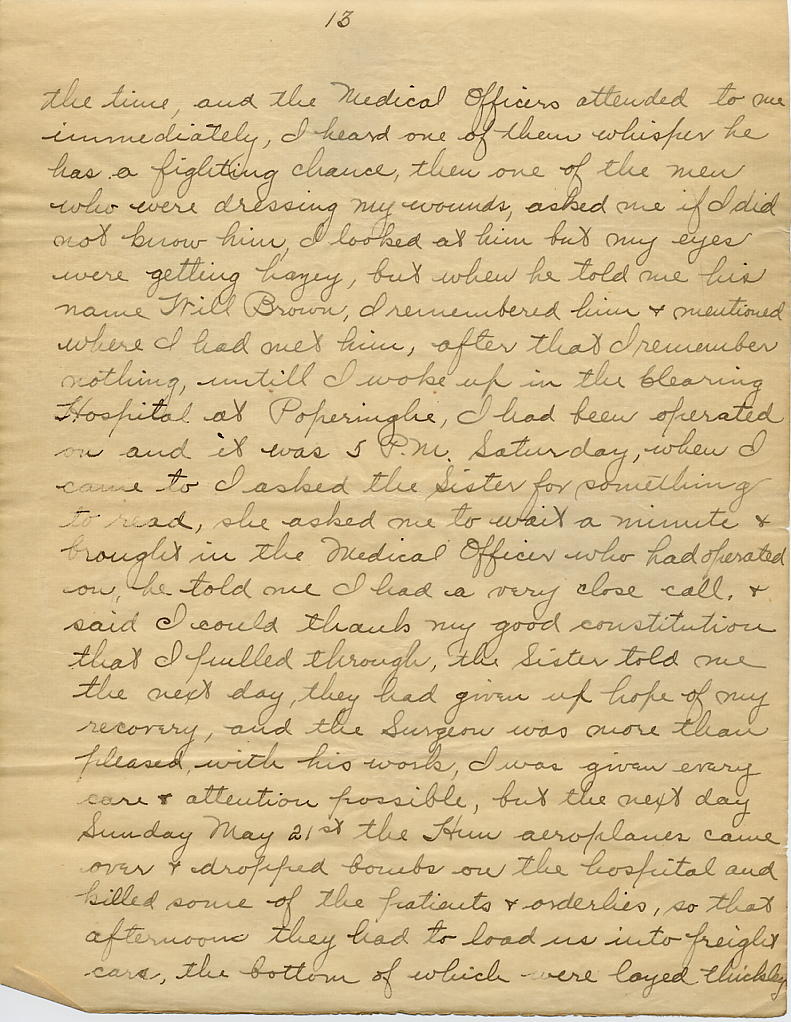 13
the time, and the Medical Officers attended to me
immediately, I heard one of them whisper he
has a fighting chance, then one of the men
who were dressing my wounds, asked me if I did
not know him, I looked at him but my eyes
were getting hazey, but when he told me his
name Will Brown, I remembered him & mentioned
where I had met him, after that I remember
nothing, untill I woke up in the Clearing
Hospital at Poperinghe, I had been operated
on and it was 5 P.M. Saturday, when I
came to I asked the Sister for something
to read, she asked me to wait a minute &
brought in the Medical Officer who had operated
on, he told me I had a very close call, &
said I could thank my good constitution
that I pulled through, the Sister told me
the next day, they had given up hope of my
recovery, and the Surgeon was more than
pleased, with his work, I was given every
care & attention possible, but the next day
Sunday May 21st the Hun aeroplanes came
over & dropped bombs on the hospital and
killed some of the patients & orderlies, so that
afternoon they had to load us into freight
cars, the bottom of which were layed thickly